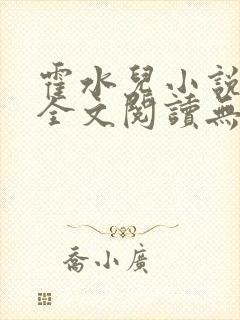 霍水兒小說
全文閱讀無
喬小廣